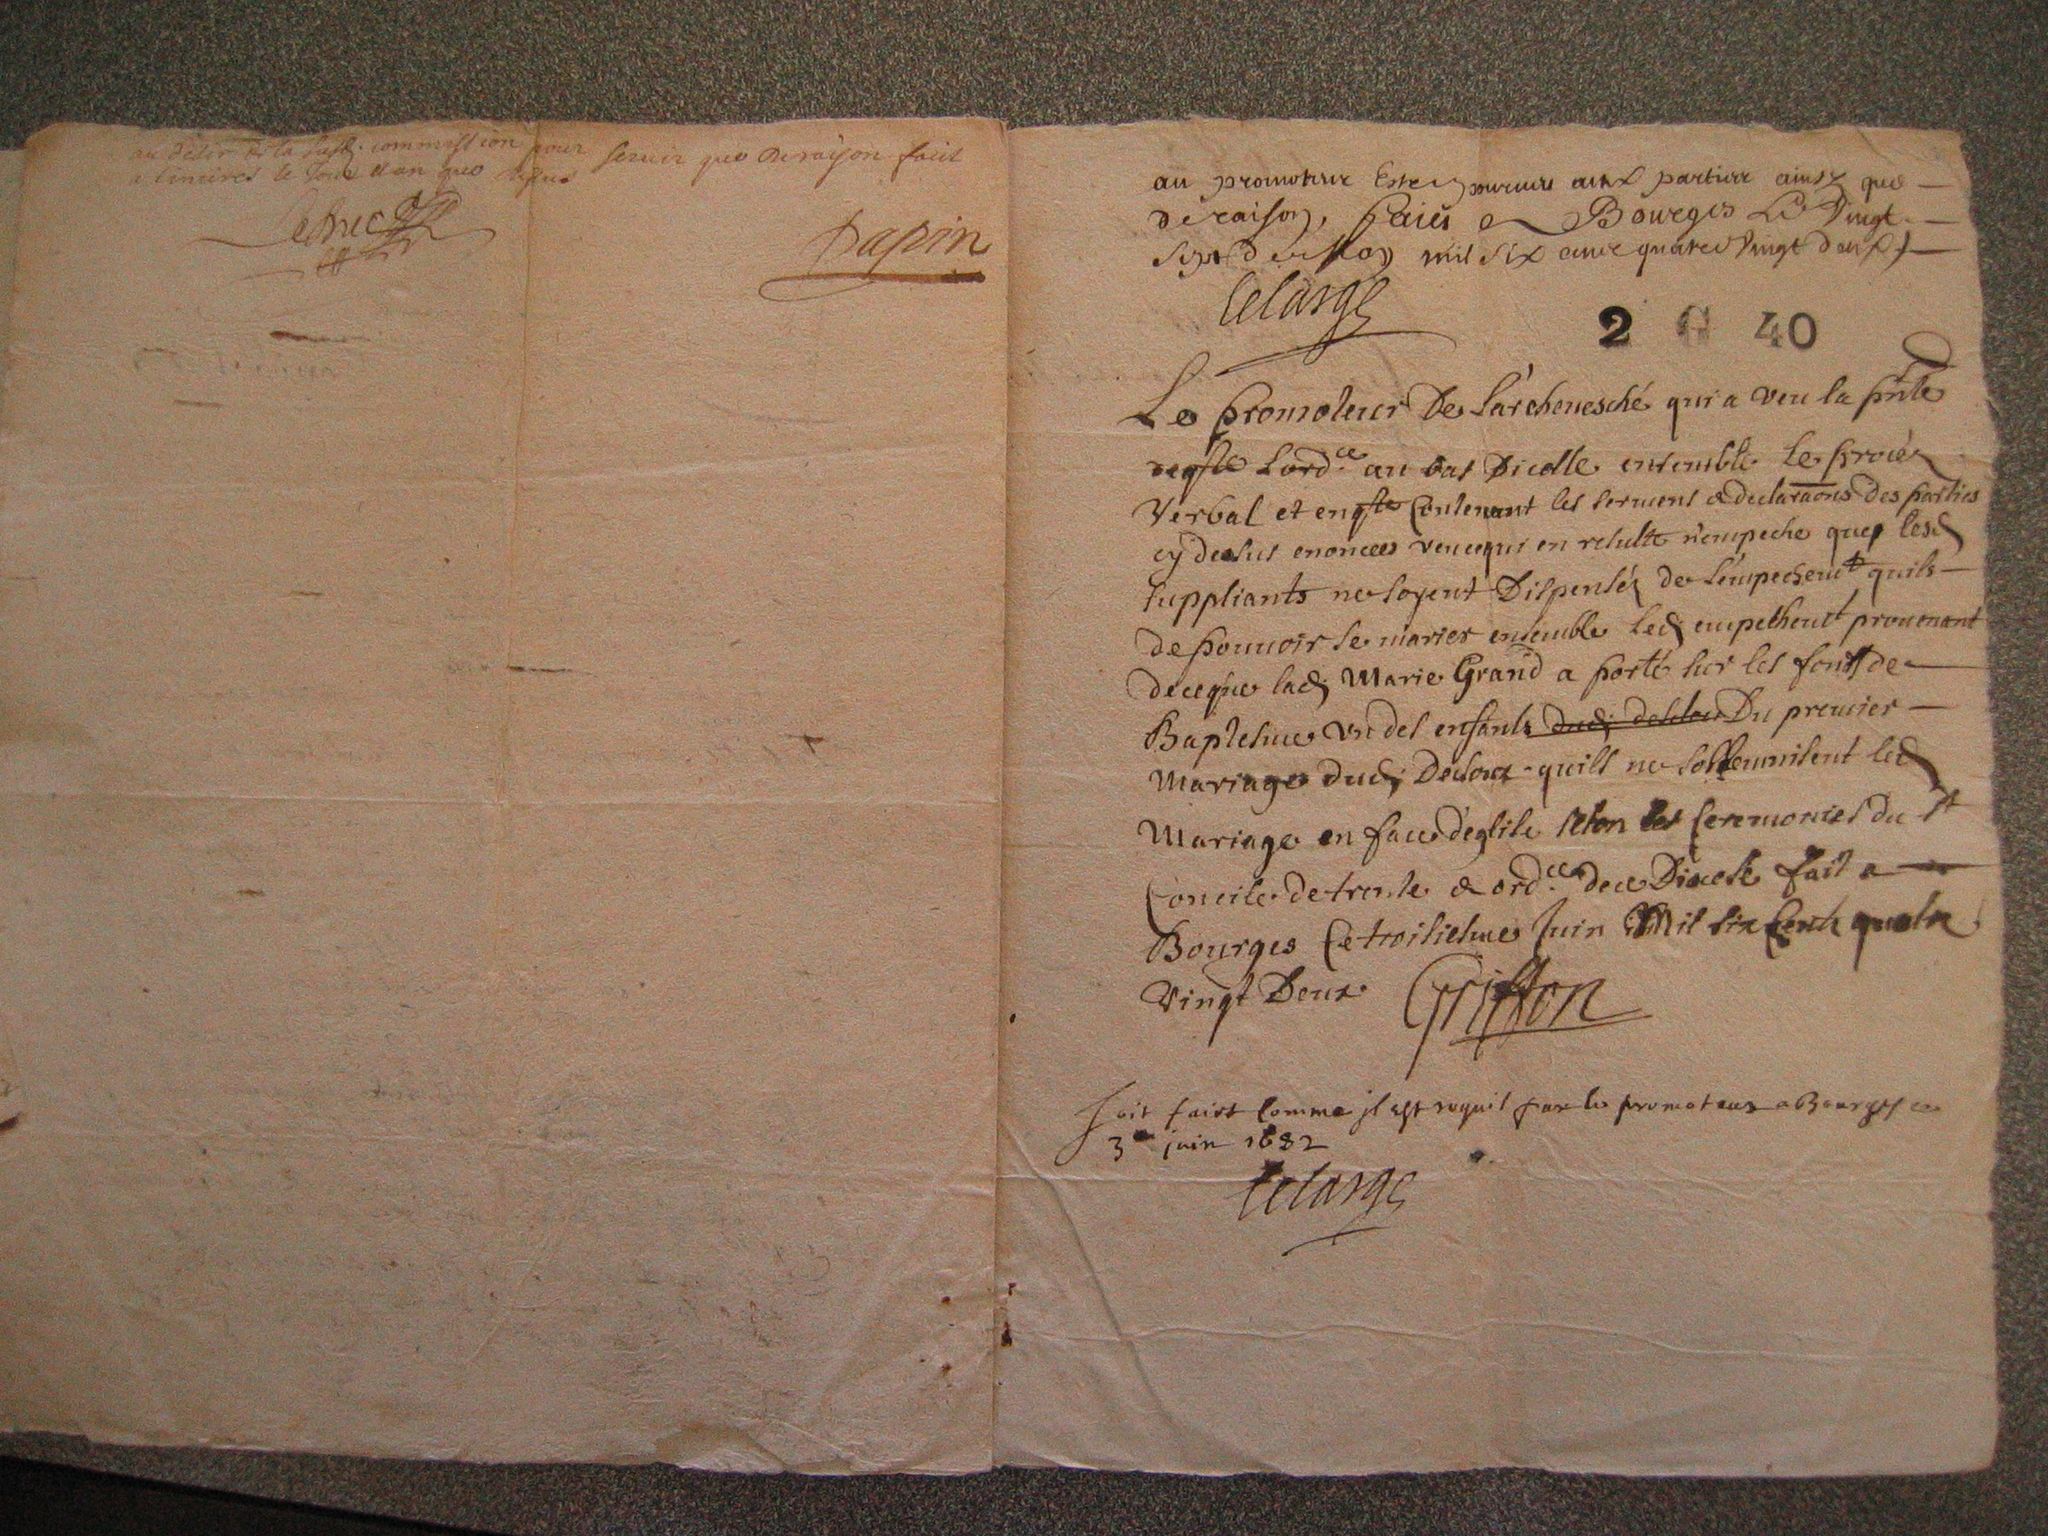 au desir de la susd. commission pour servir que de raison fait
a linieres le jour et an que dessus
Papin
au promoteur Estre pourveu aux parties ainsy que
de raison, faict a Bourges Le Vingt
sept de May mil six cent quatre Vingt deux
Lelarge
2 G 40
Le promoteur De Larchevesché qui a veu la pnte
reqste Lord.ce au bas Dicelle ensemble le proces
Verbal et enqste Contenant les serments & declaraons des parties
cy dessus enoncees veu ce qui en resulte n'empeche que lesd
suppliants ne soyent Dispensés de l'empechemt quils
de pouvoir se marier ensemble led empechemt provenant
de ce que lad Marie Grand a porté sur les fonts de
Baptesme un des enfants dud; desclou Du premier
Mariage dud; Desclou quils ne sollemnisent led
Mariage en face d'eglise selon les Ceremonies du St
Concile de trente & ord.ce de ce Diocese fait a
Bourges Ce troisiesme Juin Mil six Cents quatre
Vingt Deux Griffon
soit faict comme jl est requis par le promoteur a Bourges ce
3e juin 1682
Lelarge